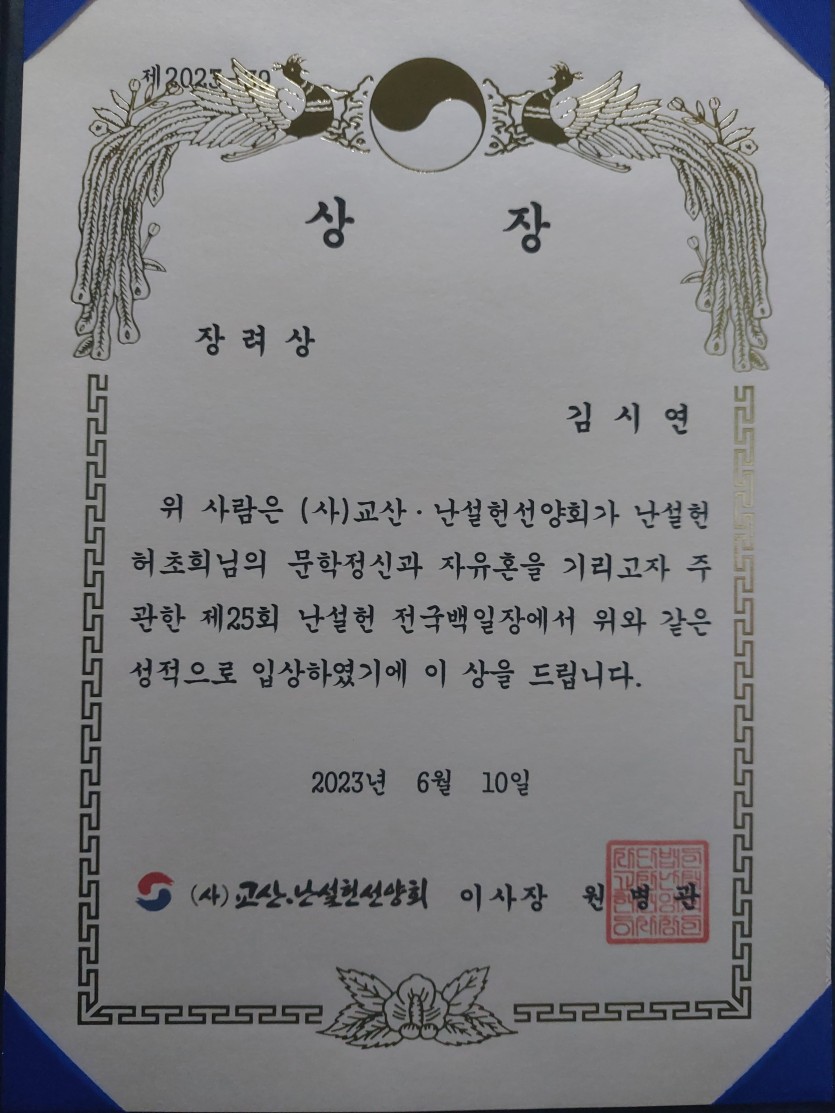 상 장
장 려 상
김 시 연
위 사람은 (사)교산 · 난설헌선양회가 난설헌
허초희님의 문학정신과 자유혼을 기리고자 주
관한 제25회 난설헌 전국백일장에서 위와 같은
성적으로 입상하였기에 이 상을 드립니다.
2023년 6월 10일
(사)교산·난설헌선양회 이사장 원 병 관